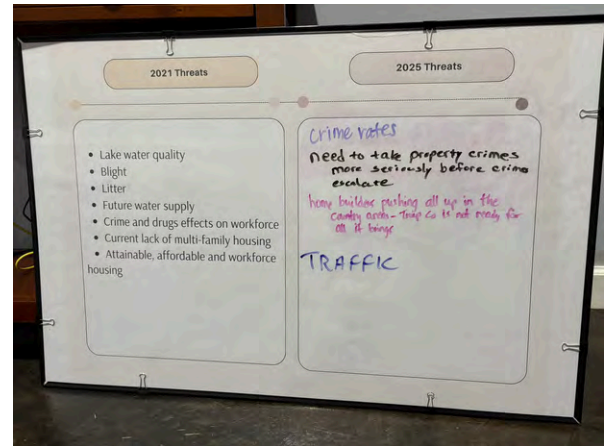 2021 Threats
2025 Threats
• Lake water quality
• Blight
• Litter
• Future water supply
• Crime and drugs effects on workforce
• Current lack of multi-family housing
• Attainable, affordable and workforce
housing
crime rates
need to take property crimes
more seriously before crime
escalate
home builders pushing all up in the
County - Troup Co is not ready for
all it brings
TRAFFIC